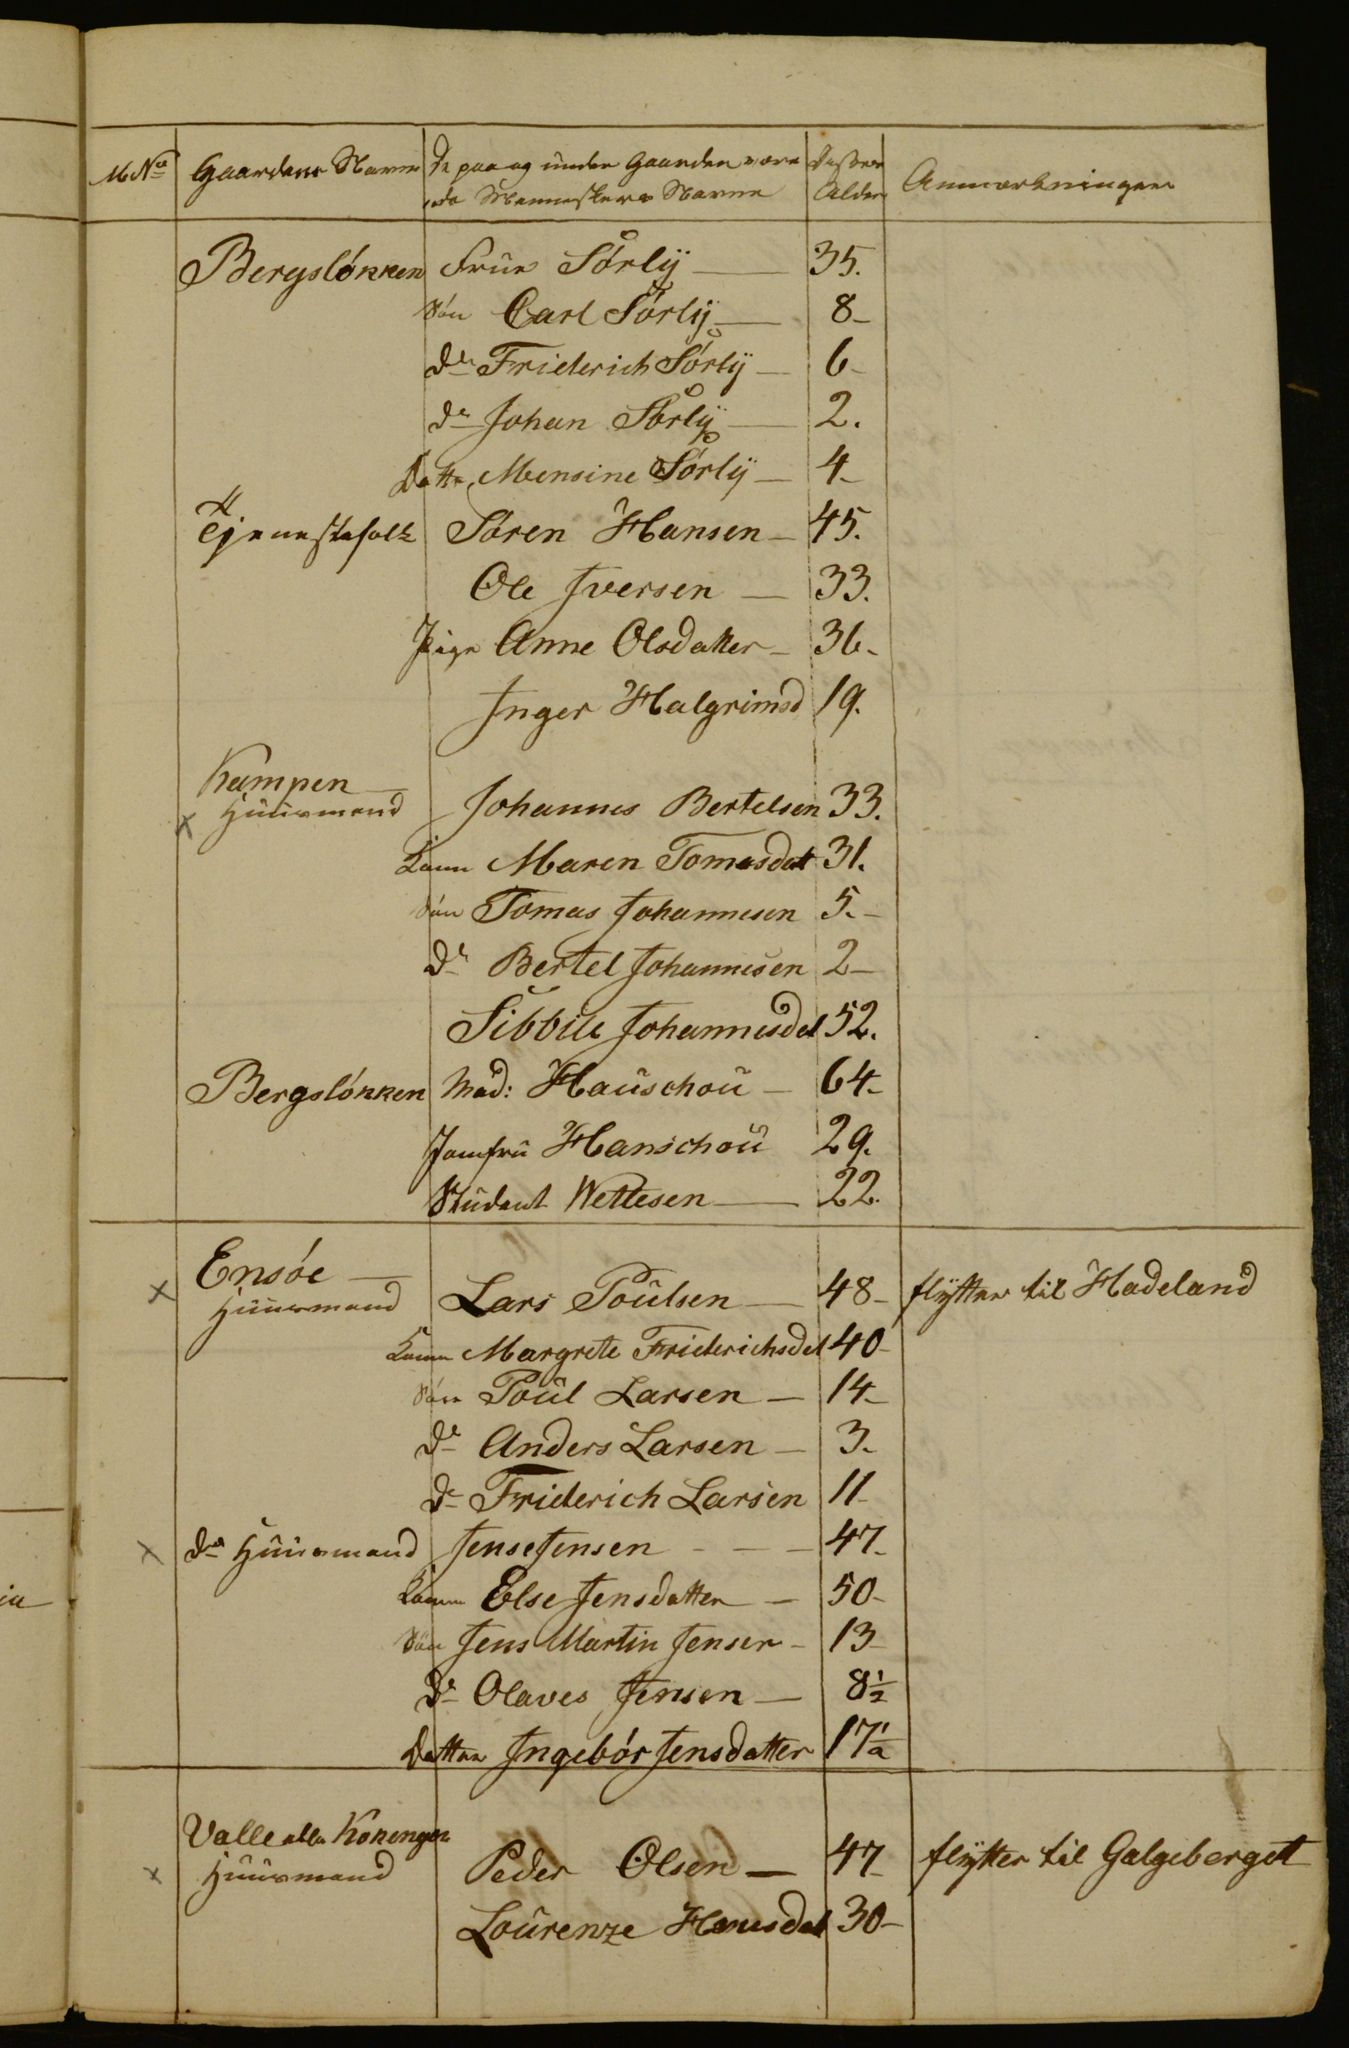 M No Gaardens Navne De paa og under Gaarden være Disses Anmærkninger
nde Menneskers Navne Alder
Bergslökken Frue Sörly 35.
Sön Carl Sörly 8
Do Friderich Sörly 6
Do Johan Sörly 2.
Datter Mensine Sörly 4
Tjenestefolk Sören Hansen 45.
Ole Iversen 33.
Pige Anne Olsdatter 36
Inger Halgrimsd 19.
Kampen
Huusmand Johannes Bertelsen 33.
Kone Maren Tomasdat 31.
Sön Tomas Johannesen 5.
Do Bertel Johannesen 2
Sibbile Johannesdat 52.
Bergslökken Mad: Hauschou 64
Jomfru Hanschou 29.
Student Wettesen 22.
Ensöe
Huusmand Lars Poulsen 48 flytter til Hadeland
Kone Margrete Friderichsdat 40
Sön Poul Larsen 14
Do Anders Larsen 3.
Do Friderich Larsen 11
Do Huusmand Jens Jensen 47
Kone Else Jensdatter 50
Sön Jens Martin Jensen 13
Do Olaves Jensen 8½
Datter Ingebör Jensdatter 17½
Valle eller Kokengen
Huusmand Peder Olsen 47 flytter til Galgeberget
Lourenze Hansdat 30